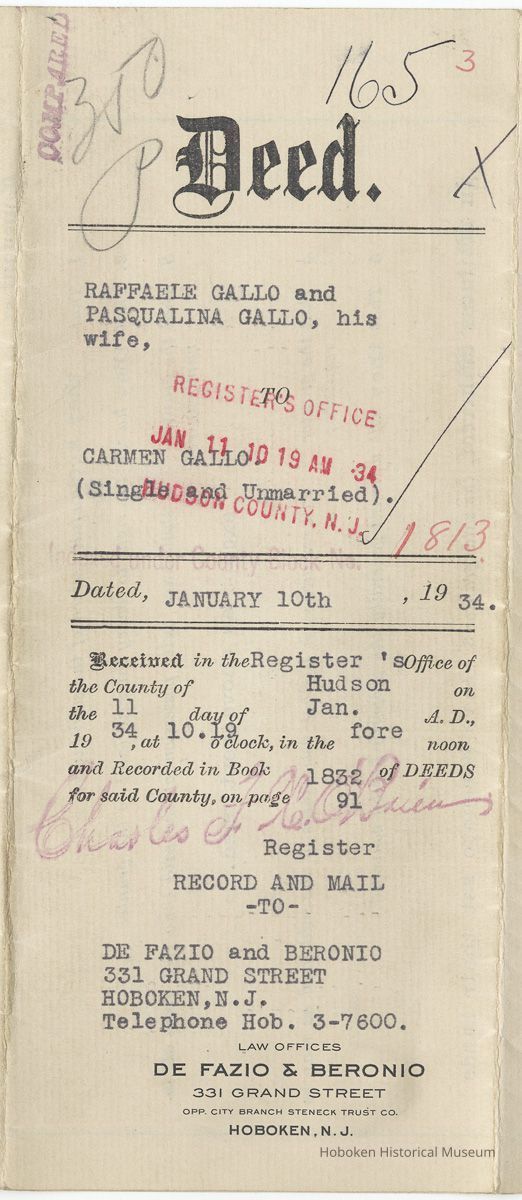 COMPARED
350
P
165 3
Deed.
X
RAFFAELE GALLO and
PASQUALINA GALLO, his
wife,
TO
REGISTER'S OFFICE
JAN 11 10 19 AM '34
HUDSON COUNTY, N. J.
CARMEN GALLO.
(Single and Unmarried).
1813
Indexed under County Clock No.
Dated, JANUARY 10th , 19 34.
Received in the Register 's Office of
the County of Hudson on
the 11 day of Jan. A. D.,
19 34, at 10.19 o'clock, in the fore noon
and Recorded in Book 1832 of DEEDS
for said County, on page 91
Charles F. X. O'Brien
Register
RECORD AND MAIL
-TO-
DE FAZIO and BERONIO
331 GRAND STREET
HOBOKEN,N.J.
Telephone Hob. 3-7600.
LAW OFFICES
DE FAZIO & BERONIO
331 GRAND STREET
OPP. CITY BRANCH STENECK TRUST CO.
HOBOKEN, N. J.
Hoboken Historical Museum